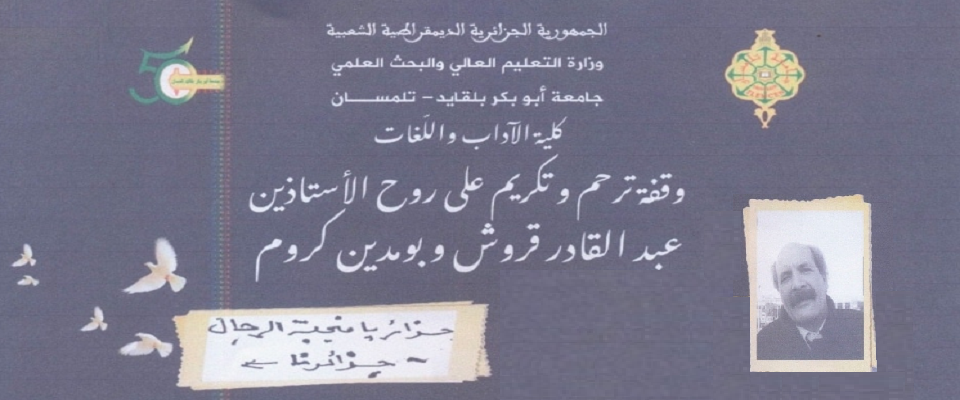 الجمهورية الجزائرية الديمقراطية الشعبية
وزارة التعليم العالي والبحث العلمي
جامعة أبو بكر بلقايد - تلمســـان
كلية الآداب واللّغات
وقفة ترحم وتكريم على روح الأستاذين
عبد القادر قروش وبومدين كروم
50
جزائر يا منجبة الرجال
~ جزائرنا ~